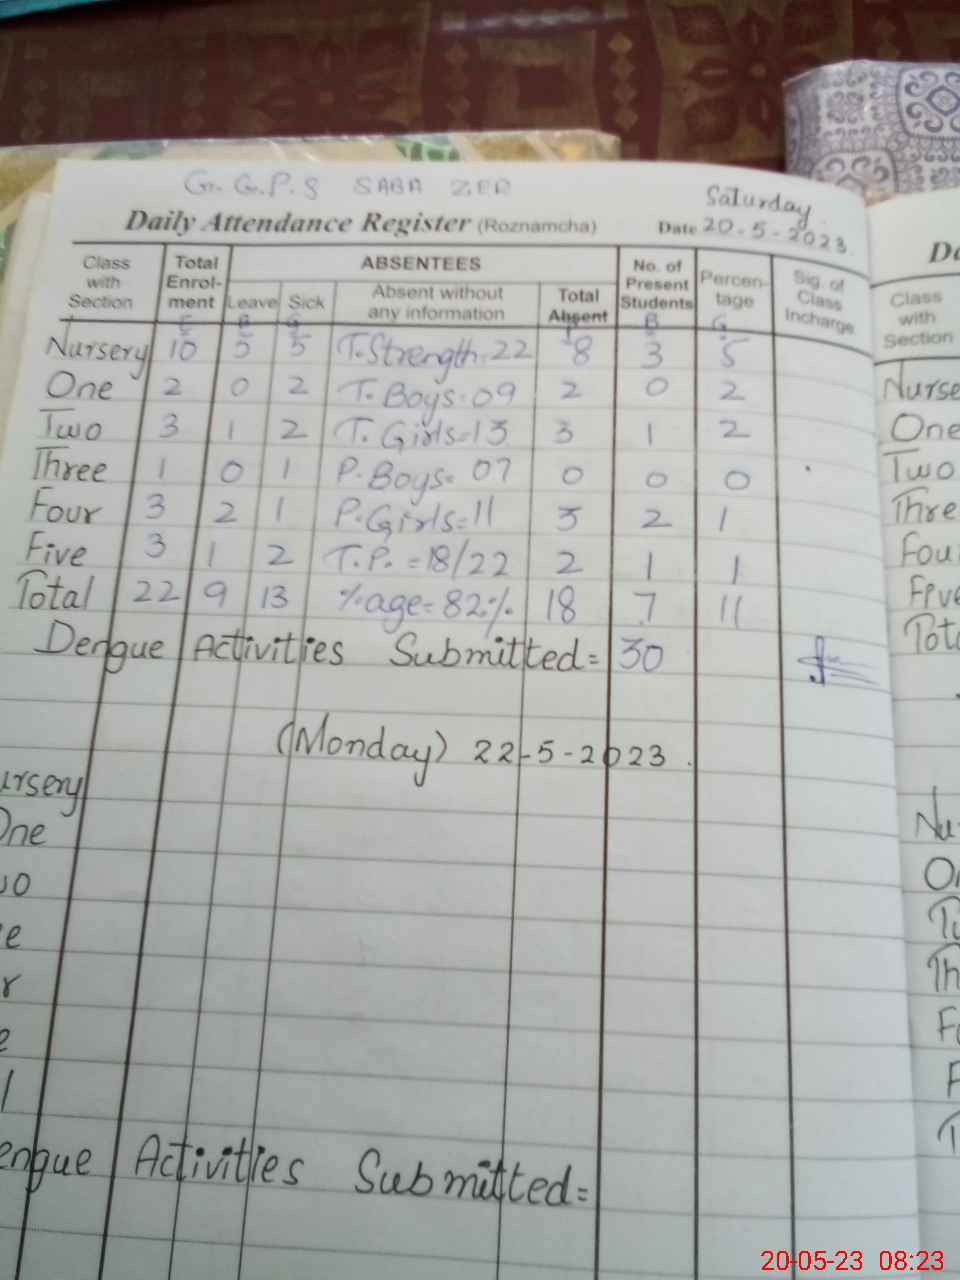 G. G.P.S SABA ZER
Saturday
Daily Attendance Register (Roznamcha) Date 20-5-2023.
Class with Section Total Enrol-ment ABSENTEES No. of Present Students Percen-tage Sig. of Class Incharge
Leave Sick Absent without any information Total Absent
E B G T B G
Nursery 10 5 5 T.Strength=22 8 3 5
One 2 0 2 T. Boys=09 2 0 2
Two 3 1 2 T. Girls=13 3 1 2
Three 1 0 1 P.Boys= 07 0 0 0
Four 3 2 1 P.Girls=11 3 2 1
Five 3 1 2 T.P. =18/22 2 1 1
Total 22 9 13 %age=82% 18 7 11
Dengue Activities Submitted= 30
(Monday) 22-5-2023.
ursery
One
wo
e
r
e
l
engue Activities Submitted=
Class with Section
Nurse
One
Two
Thre
Fou
Five
Tota
Nu
O
T
Th
Fo
F
T
20-05-23 08:23